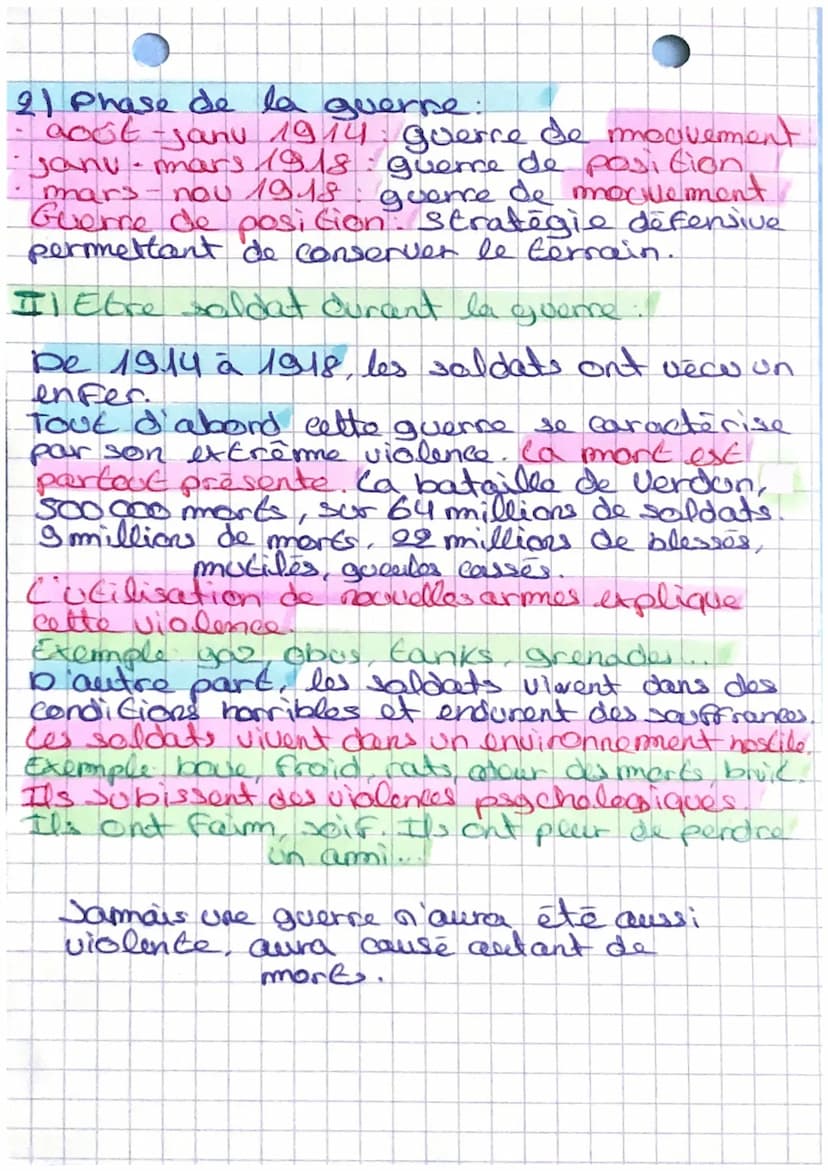 2) Phase de la guerre :
- août - janv 1914 : guerre de mouvement
- janv - mars 1918 : guerre de position
- mars - nov 1918 : guerre de mouvement
Guerre de position : stratégie défensive
permettant de conserver le terrain.
II) Etre soldat durant la guerre :
De 1914 à 1918, les soldats ont vécu un
enfer.
Tout d'abord cette guerre se caractérise
par son extrême violence. La mort est
partout présente. La bataille de Verdun,
500 000 morts, sur 64 millions de soldats.
9 millions de morts, 22 millions de blessés,
mutilés, gueules cassés.
L'utilisation de nouvelles armes explique
cette violence.
Exemple gaz, obus, tanks, grenades...
D'autre part, les soldats vivent dans des
conditions horribles et endurent des souffrances.
Les soldats vivent dans un environnement hostile.
Exemple boue, froid, rats, odeur des morts, bruit.
Ils subissent des violences psychologiques.
Ils ont faim, soif. Ils ont peur de perdre
un ami...
Jamais une guerre n'aura été aussi
violente, aura causé autant de
morts.